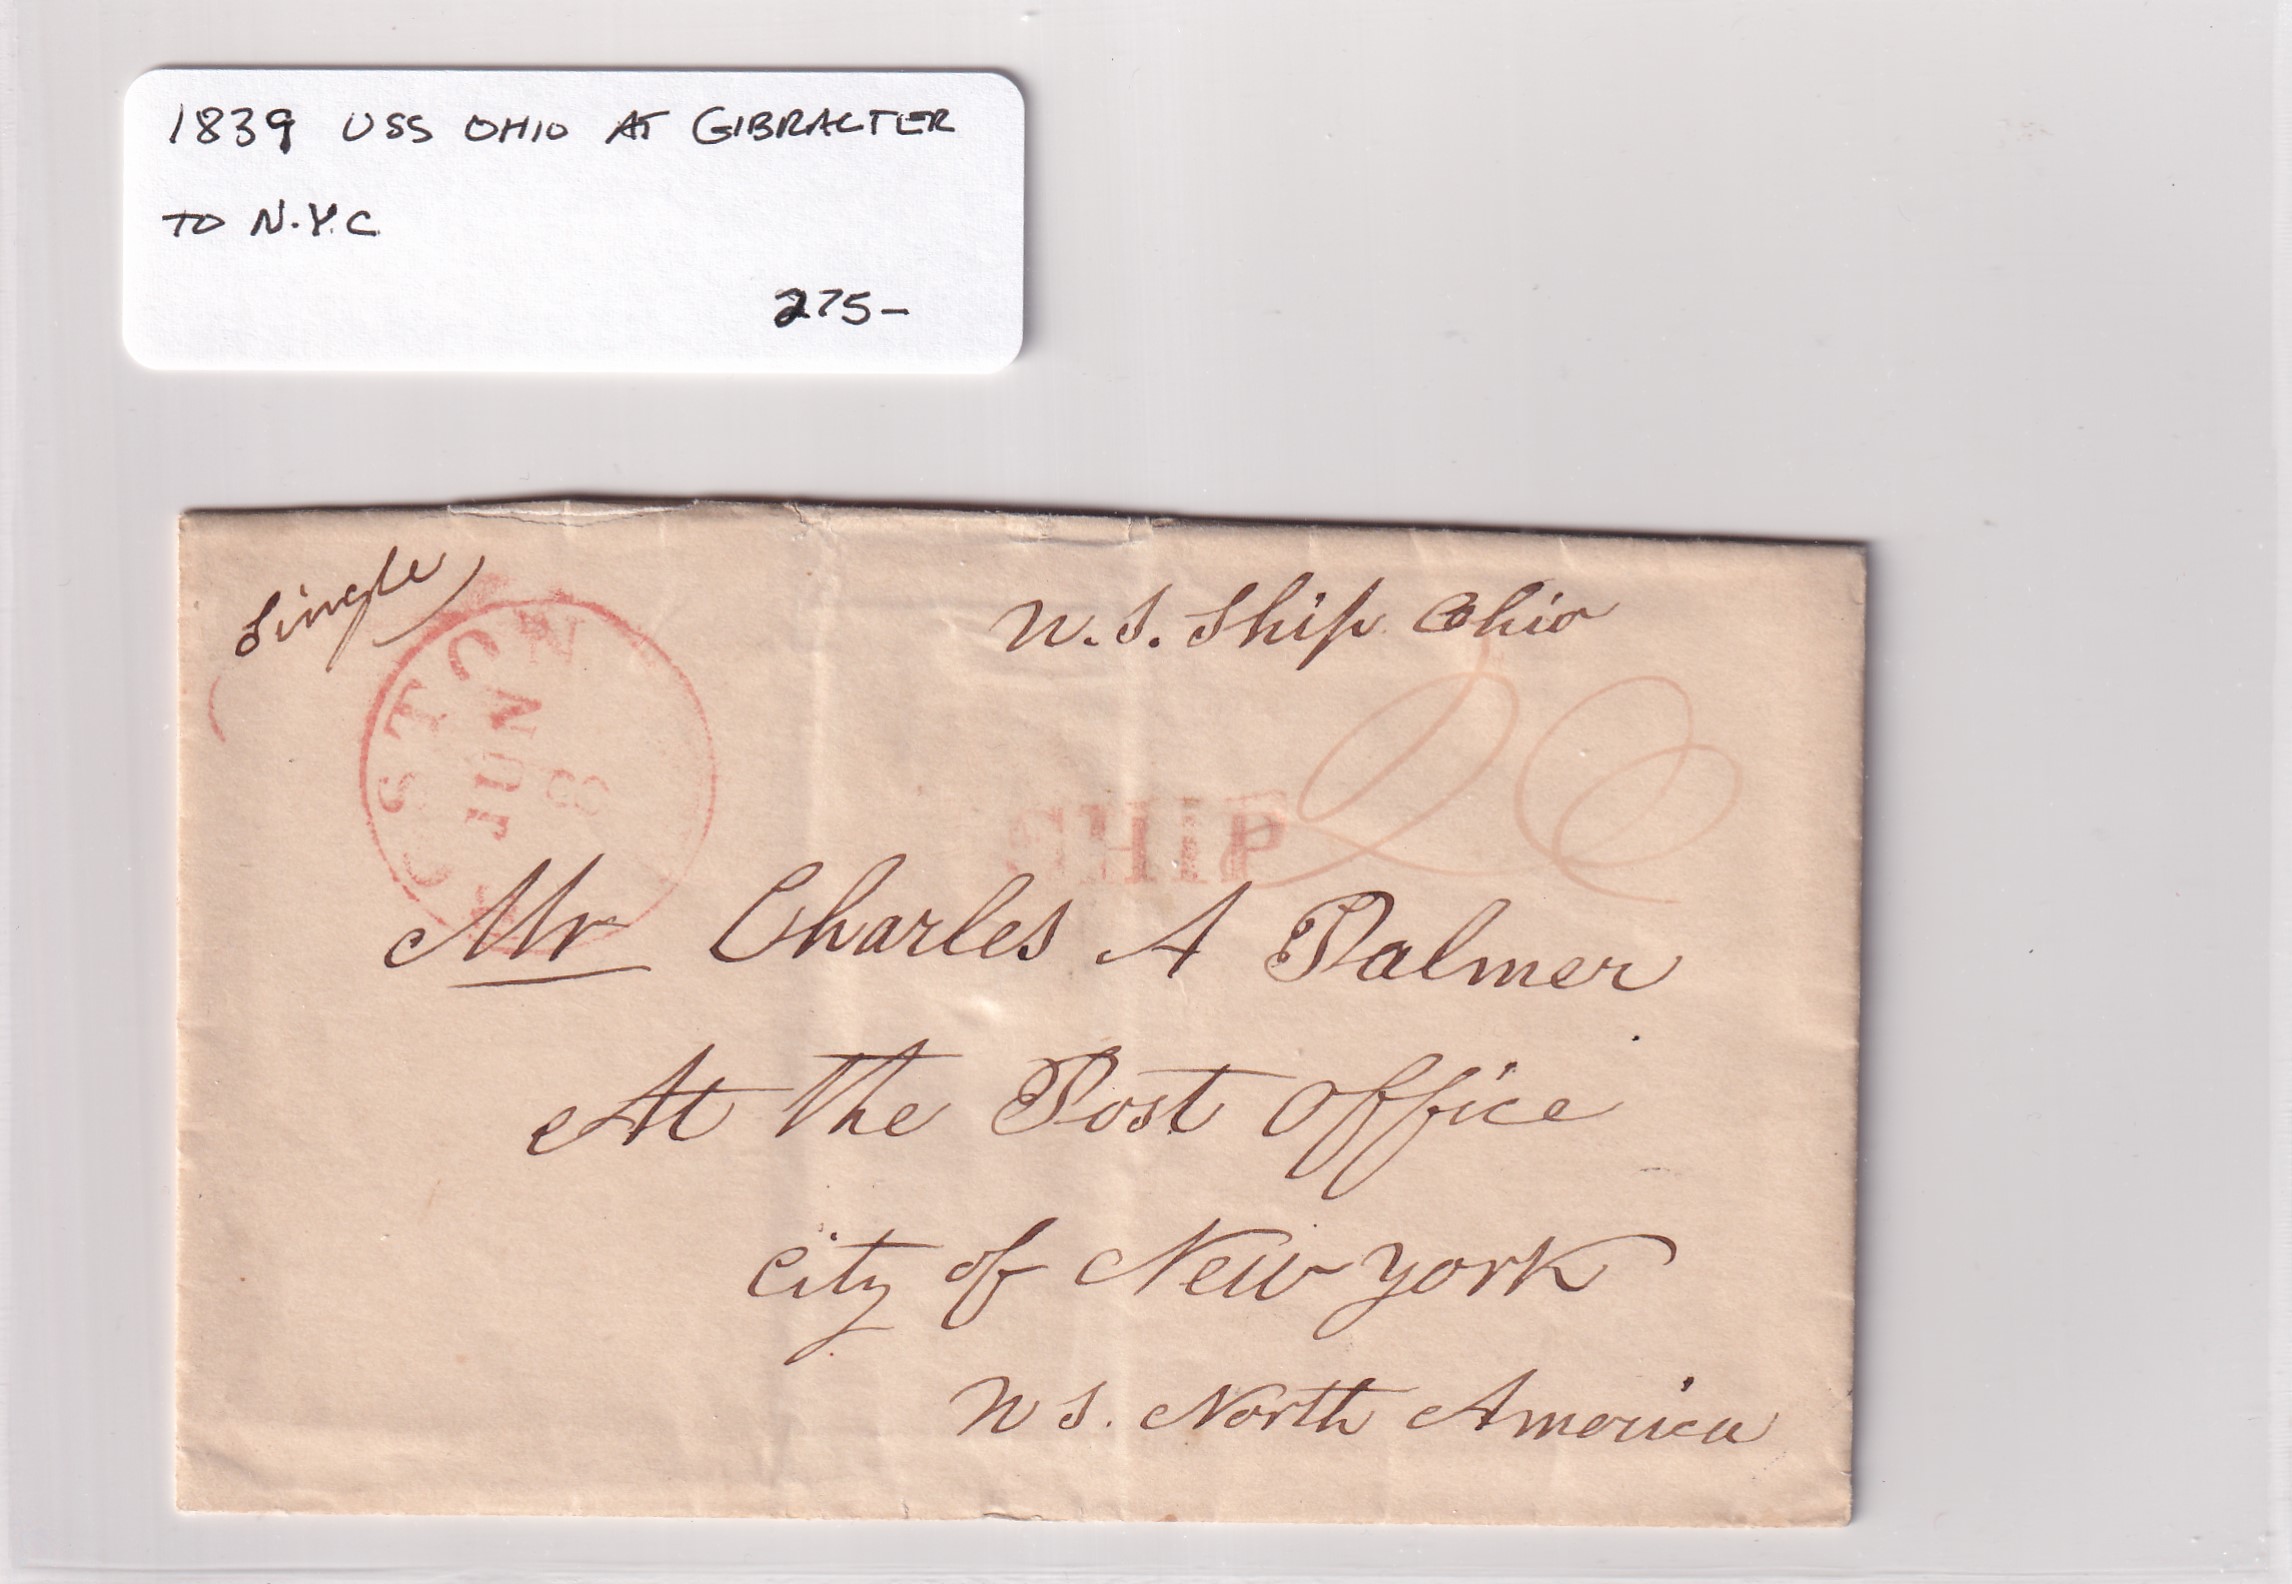 1839 USS OHIO AT GIBRALTER
TO N.Y.C
275-
Single
U.S. Ship Ohio
BOSTON
JUN
8
SHIP
Mr Charles A Palmer
At the Post Office
City of New York
U S. North America